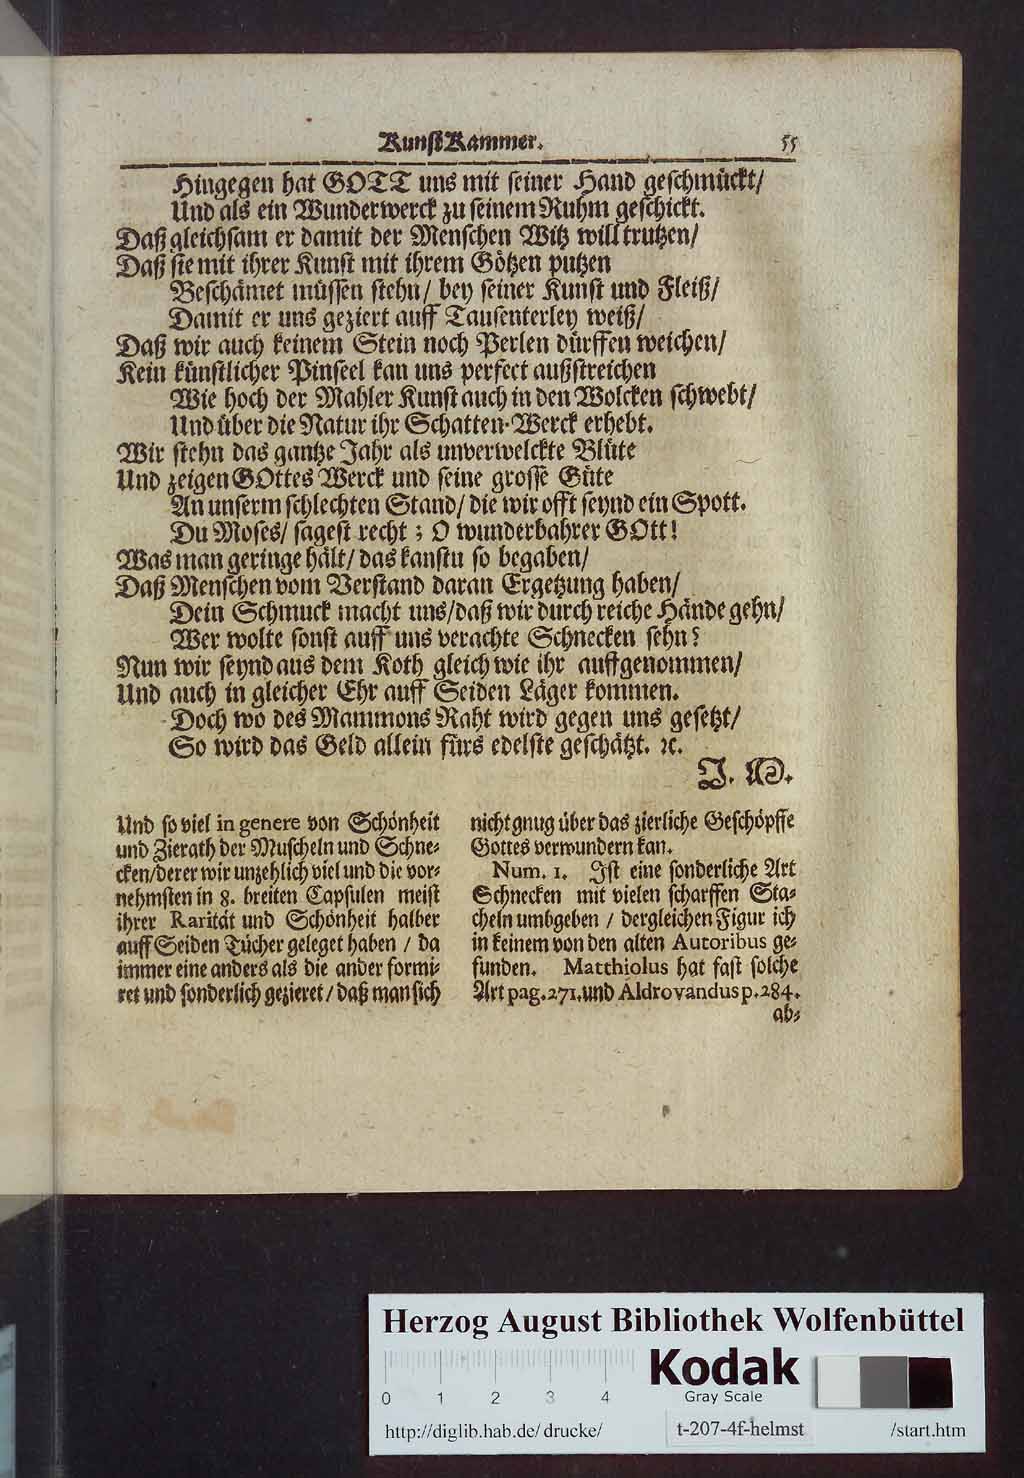 KunstKammer. 55
Hingegen hat GOTT uns mit seiner Hand geschmückt/
Und als ein Wunderwerck zu seinem Ruhm geschickt.
Daß gleichsam er damit der Menschen Witz will trutzen/
Daß sie mit ihrer Kunst mit ihrem Götzen putzen
Beschämet müssen stehn/ bey seiner Kunst und Fleiß/
Damit er uns geziert auff Tausenterley weiß/
Daß wir auch keinem Stein noch Perlen dürffen weichen/
Kein künstlicher Pinseel kan uns perfect außstreichen
Wie hoch der Mahler Kunst auch in den Wolcken schwebt/
Und über die Natur ihr Schatten-Werck erhebt.
Wir stehn das gantze Jahr als unverwelckte Blüte
Und zeigen GOttes Werck und seine grosse Güte
An unserm schlechten Stand/ die wir offt seynd ein Spott.
Du Moses/ sagest recht; O wunderbahrer GOtt!
Was man geringe hält/ das kanstu so begaben/
Daß Menschen vom Verstand daran Ergetzung haben/
Dein Schmuck macht uns/daß wir durch reiche Hände gehn/
Wer wolte sonst auff uns verachte Schnecken sehn?
Nun wir seynd aus dem Koth gleich wie ihr auffgenommen/
Und auch in gleicher Ehr auff Seiden Läger kommen.
Doch wo des Mammons Raht wird gegen uns gesetzt/
So wird das Geld allein fürs edelste geschätzt. ꝛc.
J. M.
Und so viel in genere von Schönheit
und Zierath der Muscheln und Schne-
cken/derer wir unzehlich viel und die vor-
nehmsten in 8. breiten Capsulen meist
ihrer Rarität und Schönheit halber
auff Seiden Tücher geleget haben / da
immer eine anders als die ander formi-
ret und sonderlich gezieret/ daß man sich
nicht gnug über das zierliche Geschöpffe
Gottes verwundern kan.
Num. 1. Ist eine sonderliche Art
Schnecken mit vielen scharffen Sta-
cheln umbgeben / dergleichen Figur ich
in keinem von den alten Autoribus ge-
funden. Matthiolus hat fast solche
Art pag. 271. und Aldrovandus p. 284.
ab-
Herzog August Bibliothek Wolfenbüttel
0 1 2 3 4
Kodak
Gray Scale
http://diglib.hab.de/drucke/ t-207-4f-helmst /start.htm